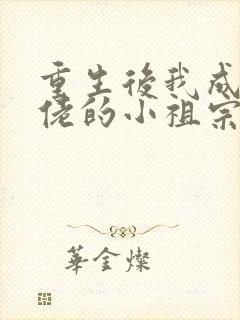 重生後我成
佬的小祖宗
華金燦